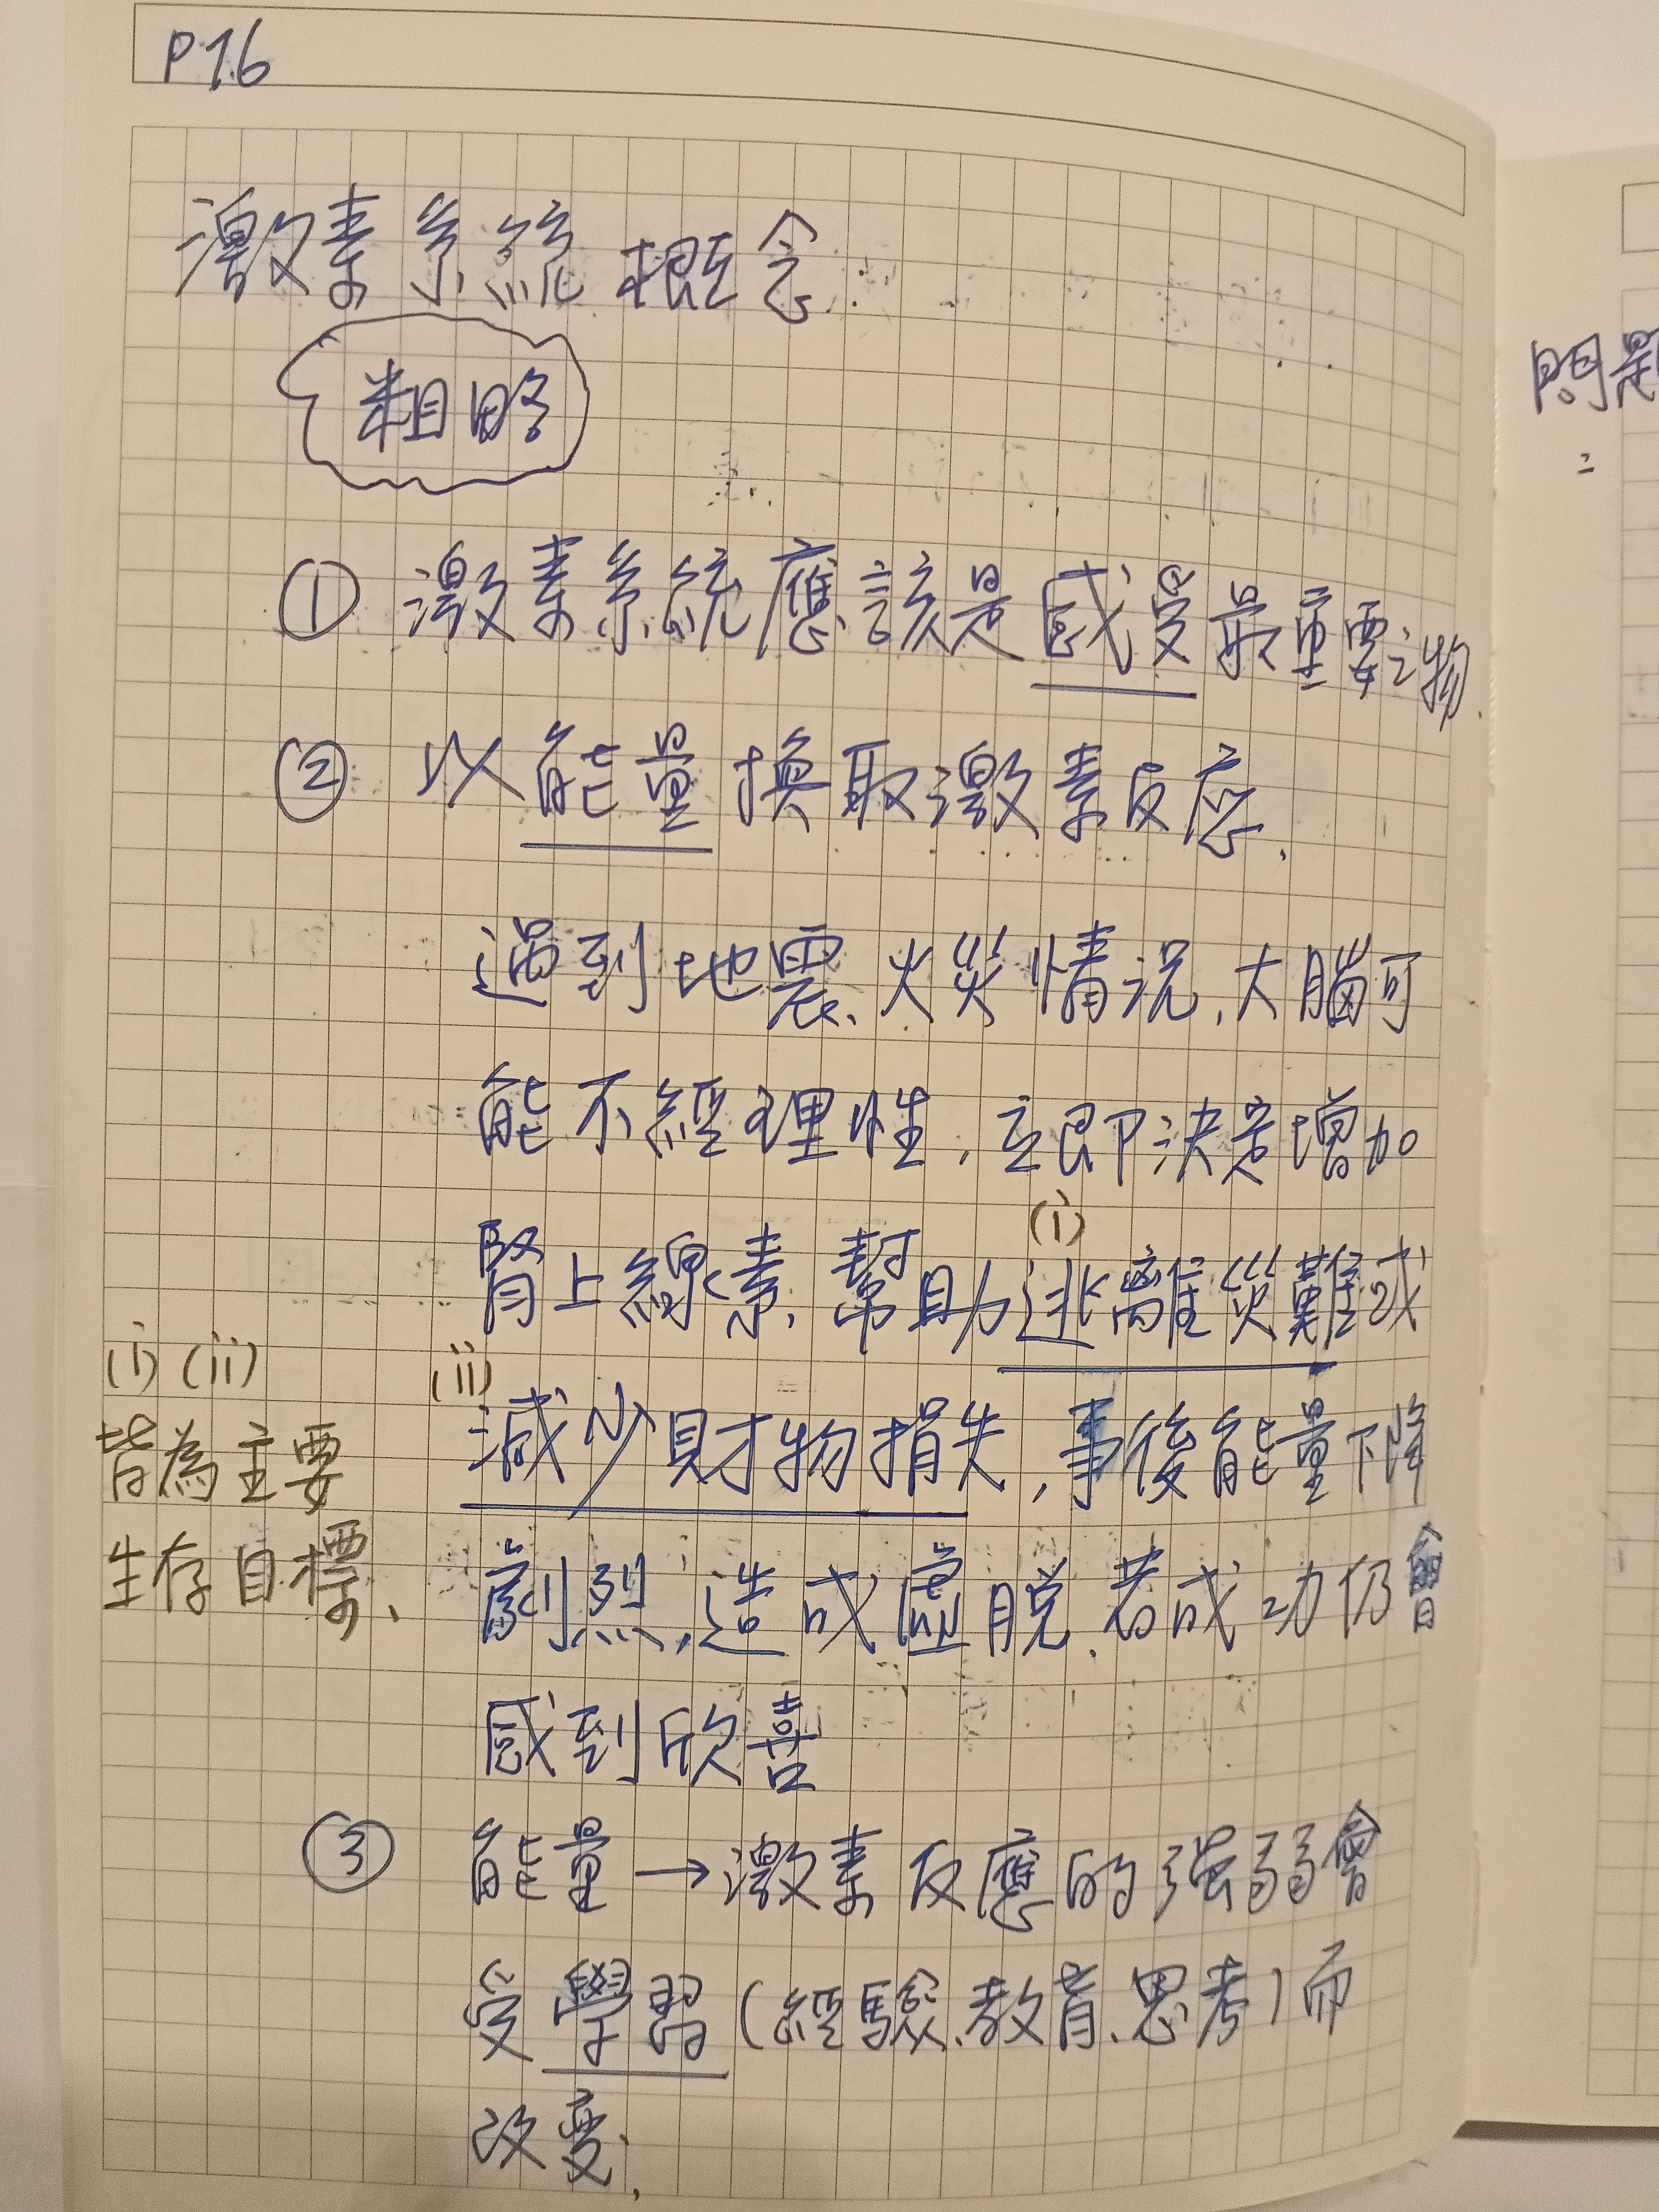 P76
激素系統概念
粗略
① 激素系統應該是感受最重要之物.
② 以能量換取激素反應.
遇到地震、火災情況,大腦可
能不經理性,立即決定增加
腎上線素,幫助(i)逃離災難或
(ii)減少財物損失,事後能量下降
劇烈,造成虛脫.若成功仍會
感到欣喜
(i) (ii)
皆為主要
生存目標、
③ 能量→激素反應的强弱會
受學習(經驗、教育、思考)而
改變.
問題
: